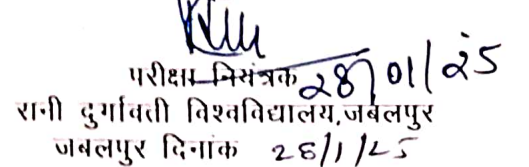 परीक्षा नियंत्रक 28/01/25
रानी दुर्गावती विश्वविद्यालय, जबलपुर
जबलपुर दिनांक 28/1/25